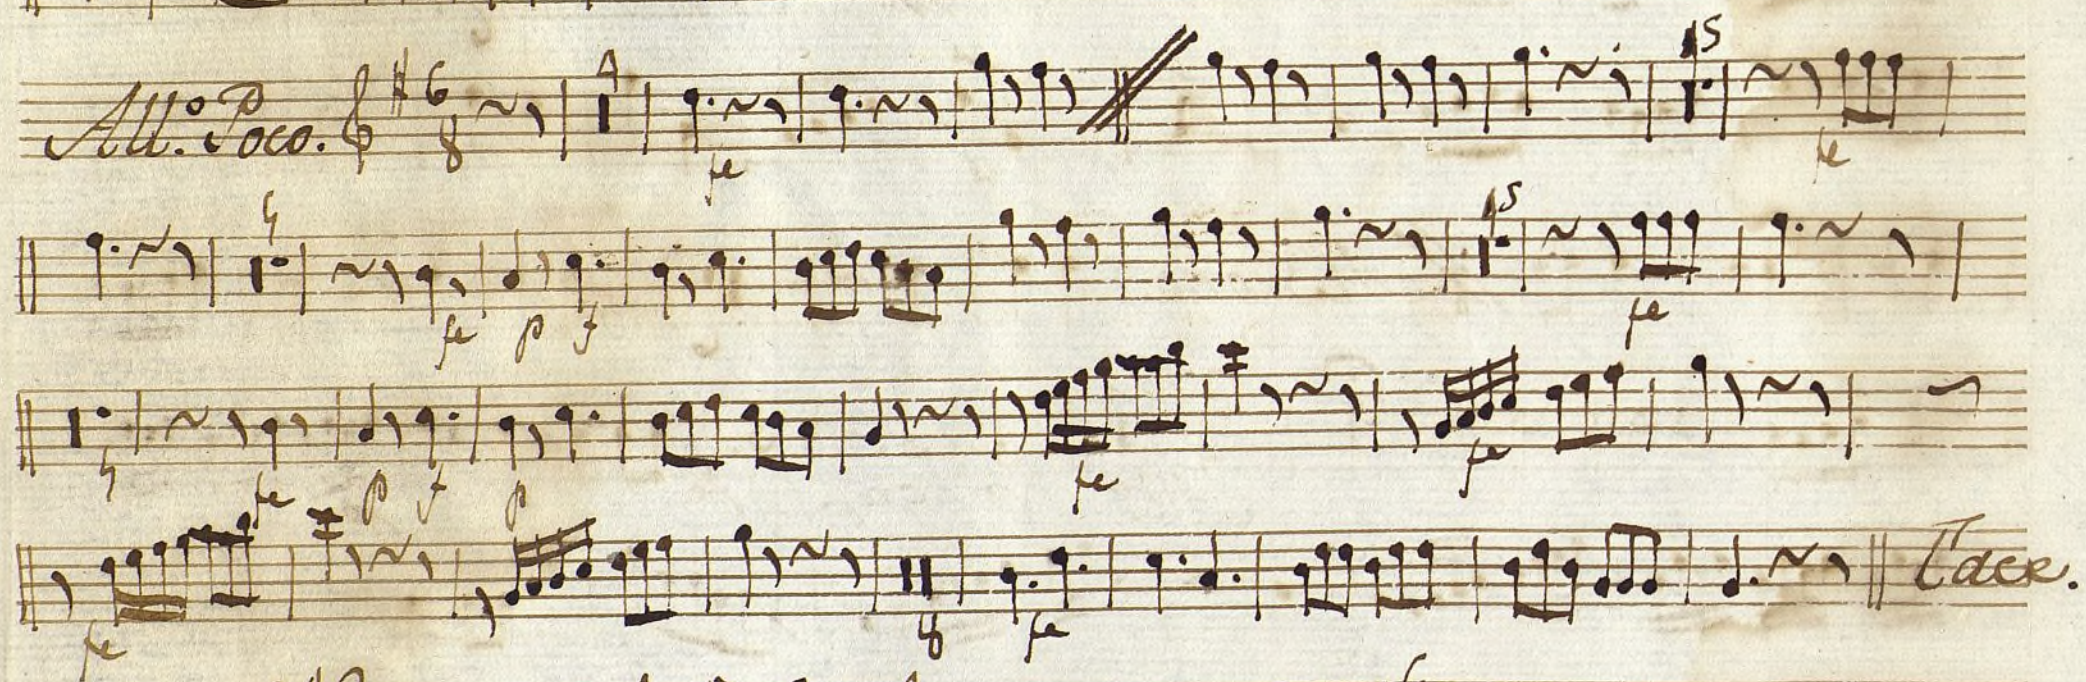 All.º Poco. 6 8 4 fe 5 fe
4 fe p f 5 fe
4 fe p f p fe fe
fe 8 fe Tace.